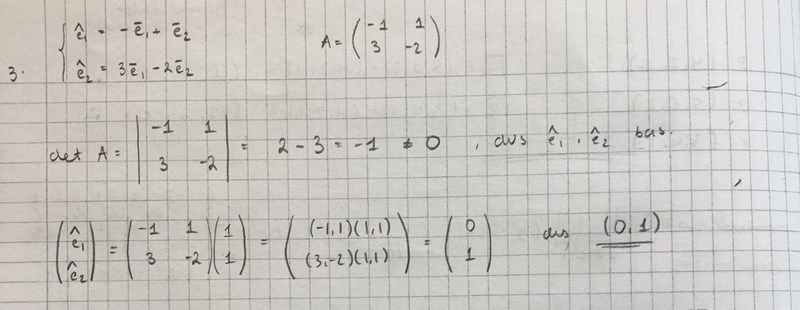 3. { ê₁ = -ē₁ + ē₂
ê₂ = 3ē₁ - 2ē₂
A = ( -1 1
3 -2 )
det A = | -1 1
3 -2 | = 2 - 3 = -1 ≠ 0 , dvs ê₁, ê₂ bas.
( ê₁
ê₂ ) = ( -1 1
3 -2 ) ( 1
1 ) = ( (-1,1)(1,1)
(3,-2)(1,1) ) = ( 0
1 ) dvs (0,1)